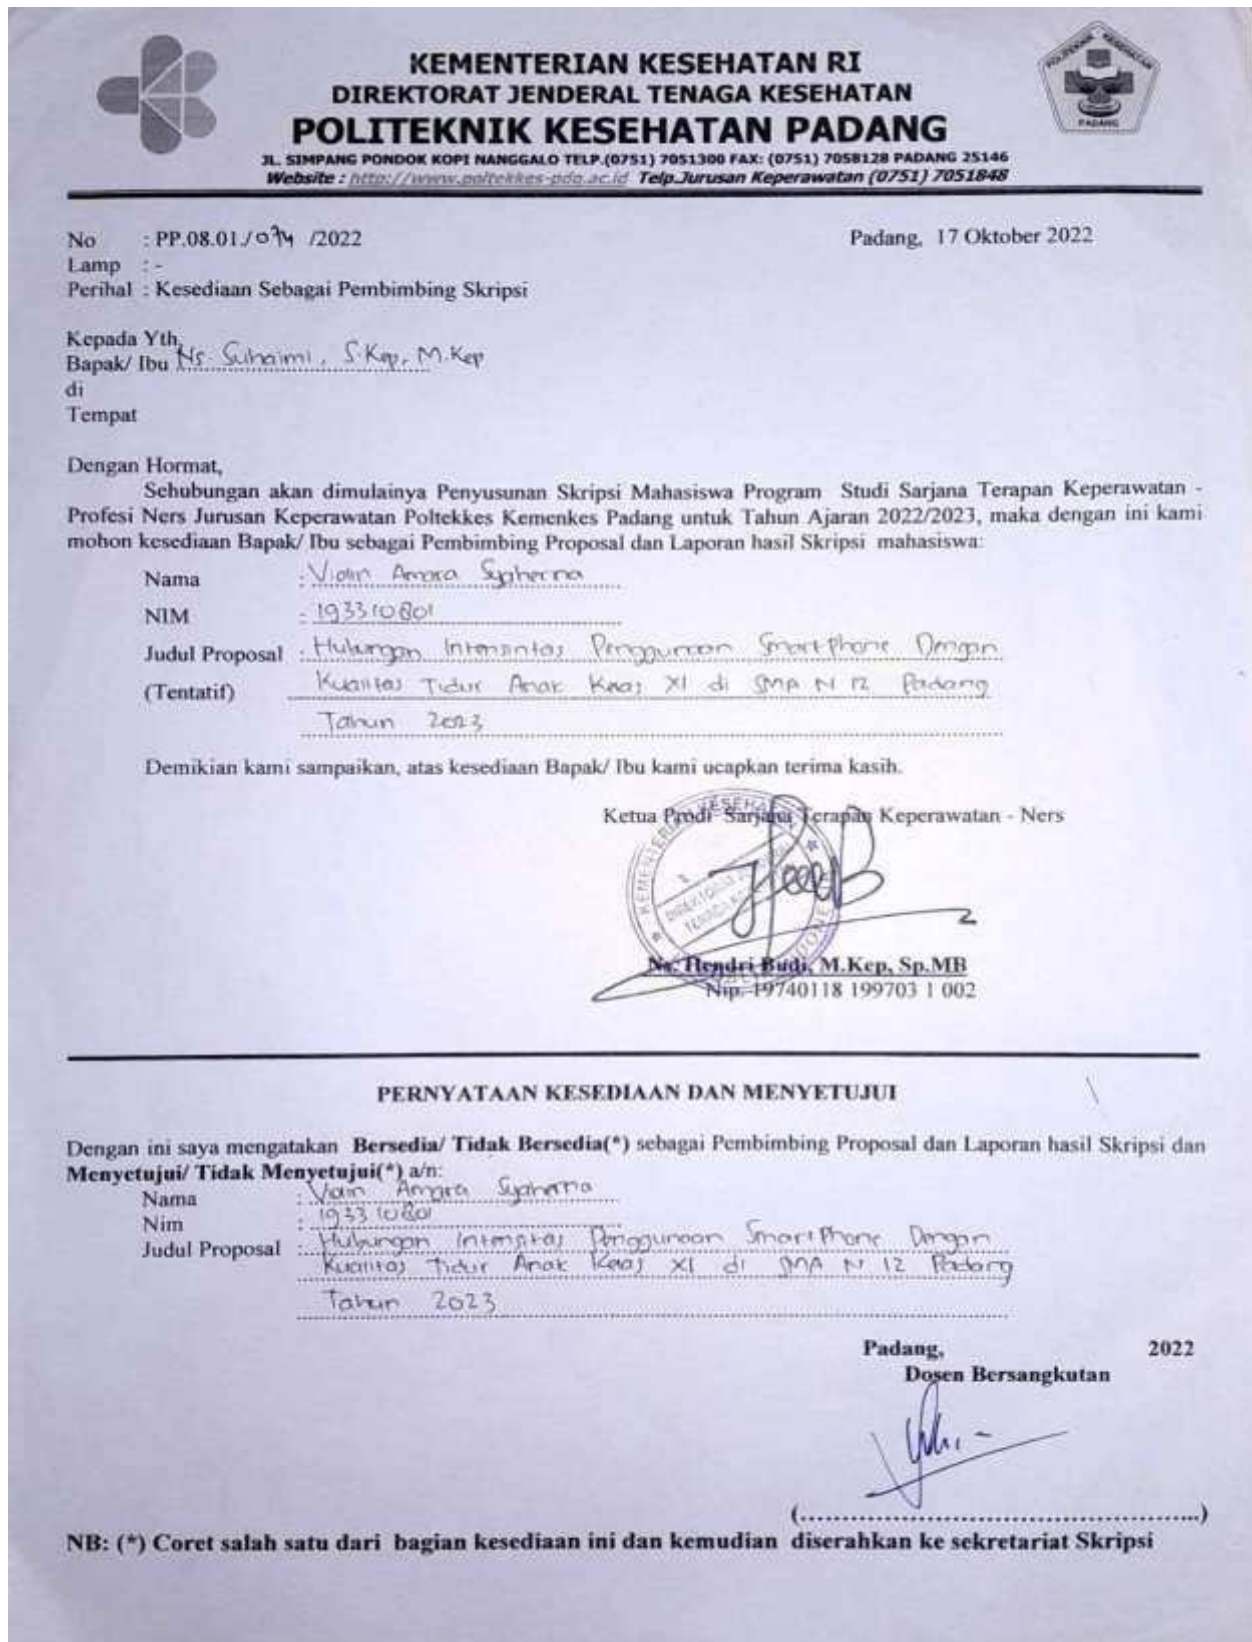 KEMENTERIAN KESEHATAN RI
DIREKTORAT JENDERAL TENAGA KESEHATAN
POLITEKNIK KESEHATAN PADANG
JL. SIMPANG PONDOK KOPI NANGGALO TELP.(0751) 7051300 FAX: (0751) 7058128 PADANG 25146
Website : http://www.poltekkes-pdg.ac.id Telp.Jurusan Keperawatan (0751) 7051848
POLITEKNIK KESEHATAN
PADANG
No : PP.08.01./074 /2022 Padang, 17 Oktober 2022
Lamp : -
Perihal : Kesediaan Sebagai Pembimbing Skripsi
Kepada Yth,
Bapak/ Ibu Ns. Suhaimi, S.Kep, M.Kep
di
Tempat
Dengan Hormat,
Sehubungan akan dimulainya Penyusunan Skripsi Mahasiswa Program Studi Sarjana Terapan Keperawatan -
Profesi Ners Jurusan Keperawatan Poltekkes Kemenkes Padang untuk Tahun Ajaran 2022/2023, maka dengan ini kami
mohon kesediaan Bapak/ Ibu sebagai Pembimbing Proposal dan Laporan hasil Skripsi mahasiswa:
Nama : Violin Amara Syaherna
NIM : 193310801
Judul Proposal : Hubungan Intensintas Penggunaan Smartphone Dengan
(Tentatif) Kualitas Tidur Anak Kelas XI di SMA N 12 Padang
Tahun 2023
Demikian kami sampaikan, atas kesediaan Bapak/ Ibu kami ucapkan terima kasih.
Ketua Prodi Sarjana Terapan Keperawatan - Ners
KEMENTERIAN KESEHATAN
DIREKTORAT JENDERAL
TENAGA KESEHATAN
Ns. Hendri Budi, M.Kep, Sp.MB
Nip. 19740118 199703 1 002
PERNYATAAN KESEDIAAN DAN MENYETUJUI
Dengan ini saya mengatakan Bersedia/ Tidak Bersedia(*) sebagai Pembimbing Proposal dan Laporan hasil Skripsi dan
Menyetujui/ Tidak Menyetujui(*) a/n:
Nama : Violin Amara Syaherna
Nim : 193310801
Judul Proposal : Hubungan Intensitas Penggunaan Smartphone Dengan
Kualitas Tidur Anak Kelas XI di SMA N 12 Padang
Tahun 2023
Padang, 2022
Dosen Bersangkutan
(..................................................)
NB: (*) Coret salah satu dari bagian kesediaan ini dan kemudian diserahkan ke sekretariat Skripsi